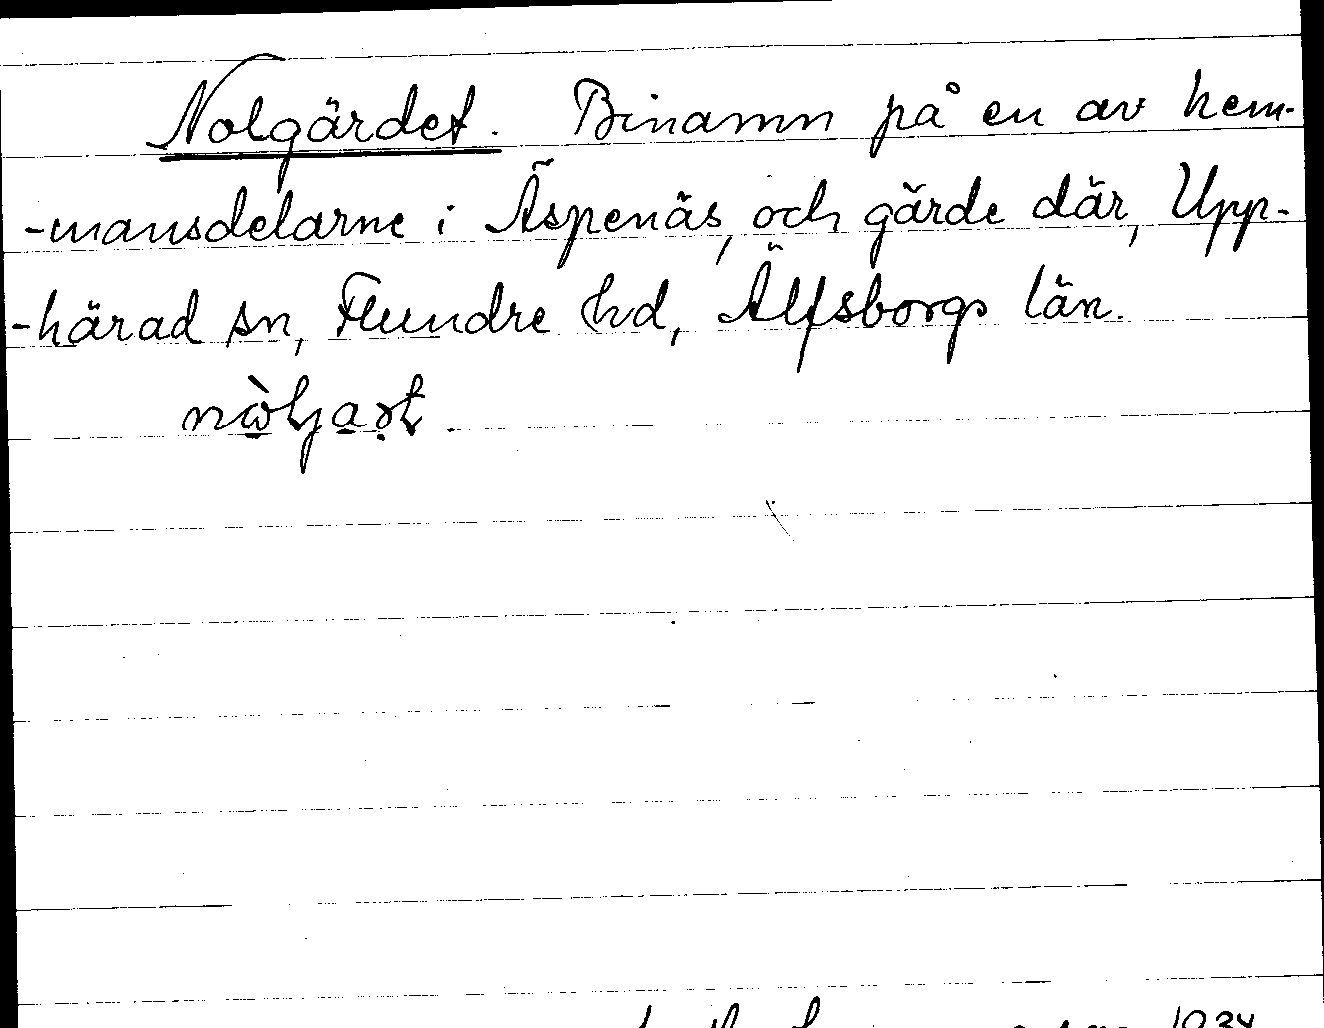 Nolgärdet. Binamn på en av hem-
-mansdelarne i Äspenäs, och gärde där, Upp-
-härad sn, Flundre hd, Älfsborgs län.
1934